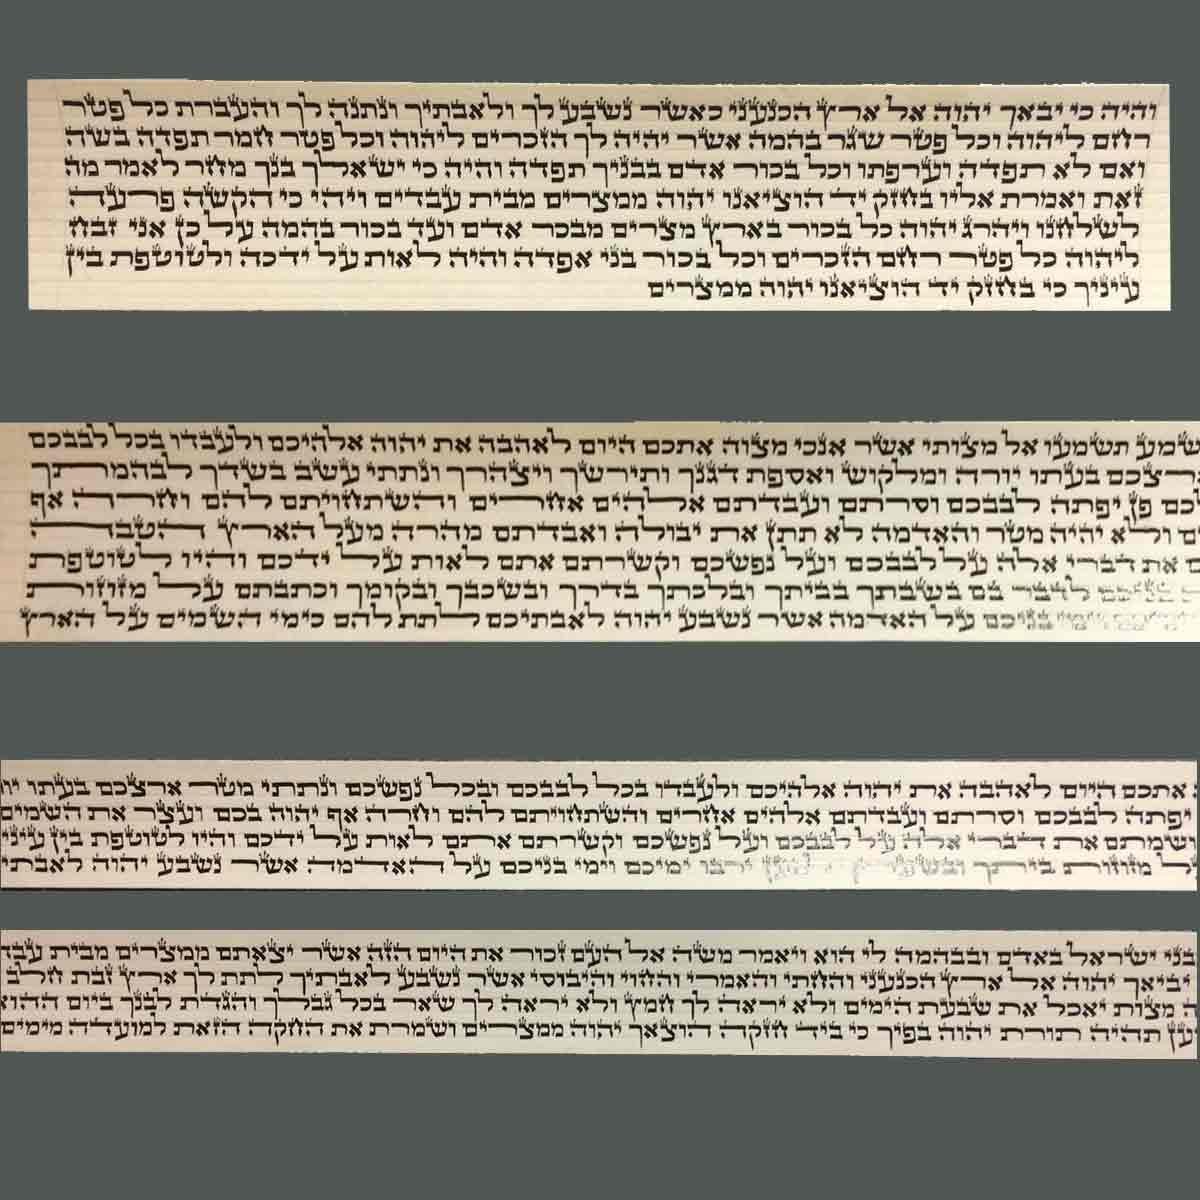 והיה כי יבאך יהוה אל ארץ הכנעני כאשר נשבע לך ולאבתיך ונתנה לך והעברת כל פטר
רחם ליהוה וכל פטר שגר בהמה אשר יהיה לך הזכרים ליהוה וכל פטר חמר תפדה בשה
ואם לא תפדה וערפתו וכל בכור אדם בבניך תפדה והיה כי ישאלך בנך מחר לאמר מה
זאת ואמרת אליו בחזק יד הוציאנו יהוה ממצרים מבית עבדים ויהי כי הקשה פרעה
לשלחנו ויהרג יהוה כל בכור בארץ מצרים מבכר אדם ועד בכור בהמה על כן אני זבח
ליהוה כל פטר רחם הזכרים וכל בכור בני אפדה והיה לאות על ידכה ולטוטפת בין
עיניך כי בחזק יד הוציאנו יהוה ממצרים
שמע תשמעו אל מצותי אשר אנכי מצוה אתכם היום לאהבה את יהוה אלהיכם ולעבדו בכל לבבכם
רצכם בעתו יורה ומלקוש ואספת דגנך ותירשך ויצהרך ונתתי עשב בשדך לבהמתך
כם פן יפתה לבבכם וסרתם ועבדתם אלהים אחרים והשתחויתם להם וחרה אף
ים ולא יהיה מטר והאדמה לא תתן את יבולה ואבדתם מהרה מעל הארץ הטבה
ם את דברי אלה על לבבכם ועל נפשכם וקשרתם אתם לאות על ידכם והיו לטוטפת
בניכם לדבר בם בשבתך בביתך ובלכתך בדרך ובשכבך ובקומך וכתבתם על מזוזות
בניכם על האדמה אשר נשבע יהוה לאבתיכם לתת להם כימי השמים על הארץ
אתכם היום לאהבה את יהוה אלהיכם ולעבדו בכל לבבכם ובכל נפשכם ונתתי מטר ארצכם בעתו יו
יפתה לבבכם וסרתם ועבדתם אלהים אחרים והשתחויתם להם וחרה אף יהוה בכם ועצר את השמים
ושמתם את דברי אלה על לבבכם ועל נפשכם וקשרתם אתם לאות על ידכם והיו לטוטפת בין עיני
ל מזוזות ביתך ירבו ימיכם וימי בניכם על האדמה אשר נשבע יהוה לאבתי
בני ישראל באדם ובבהמה לי הוא ויאמר משה אל העם זכור את היום הזה אשר יצאתם ממצרים מבית עבד
יביאך יהוה אל ארץ הכנעני והחתי והאמרי והחוי והיבוסי אשר נשבע לאבתיך לתת לך ארץ זבת חלב
ה מצות יאכל את שבעת הימים ולא יראה לך חמץ ולא יראה לך שאר בכל גבלך והגדת לבנך ביום ההוא
ען תהיה תורת יהוה בפיך כי ביד חזקה הוצאך יהוה ממצרים ושמרת את החקה הזאת למועדה מימים